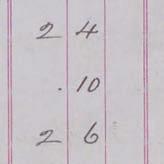 2 4
. 10
2 6